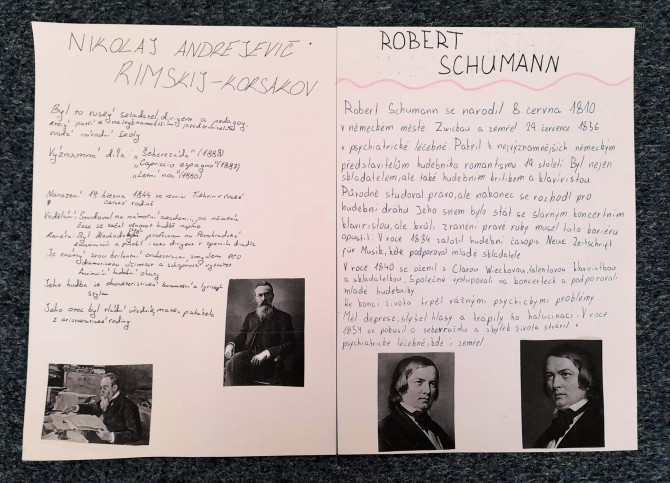 NIKOLAJ ANDREJEVIČ
RIMSKIJ-KORSAKOV
Byl to ruský skladatel, dirigent a pedagog,
který patří k nejvýznamnějším představitelům
ruské národní školy
Významná díla „Šeherezáda“ (1888)
„Capriccio espagnol“ (1887)
(1880)
Narození 19 března 1844 ve městě Tichvin v ruské
rodině
Vzdělání: Studoval na námořní akademii, po
čase se začal věnovat hudbě
Kariéra: Byl profesorem na Petrohradské
a působil i jako dirigent v operním divadle
Je známý svou brilantní orchestrací, smyslem pro
a schopností vytvořit
hudební obrazy
Jeho hudba je charakteristická
stylem
Jeho otec byl úředník, matka pocházela
z aristokratické rodiny
ROBERT
SCHUMANN
Robert Schumann se narodil 8 června 1810
v německém městě Zwickau a zemřel 29 července 1856
v psychiatrické léčebně. Patřil k nejvýznamnějším německým
představitelům hudebního romantismu 19 století. Byl nejen
skladatelem, ale také hudebním kritikem a klavíristou.
Původně studoval právo, ale nakonec se rozhodl pro
hudební dráhu. Jeho snem bylo stát se slavným koncertním
klavíristou, ale kvůli zranění pravé ruky musel tuto kariéru
opustit. V roce 1834 založil hudební časopis Neue Zeitschrift
für Musik, kde podporoval mladé skladatele.
V roce 1840 se oženil s Clarou Wieckovou, talentovou klavíristkou
a skladatelkou. Společně vystupovali na koncertech a podporovali
mladé hudebníky.
Ke konci života trpěl vážnými psychickými problémy
Měl deprese, slyšel hlasy a trápily ho halucinaci. V roce
1854 se pokusil o sebevraždu a zbytek života strávil v
psychiatrické léčebně, kde i zemřel.